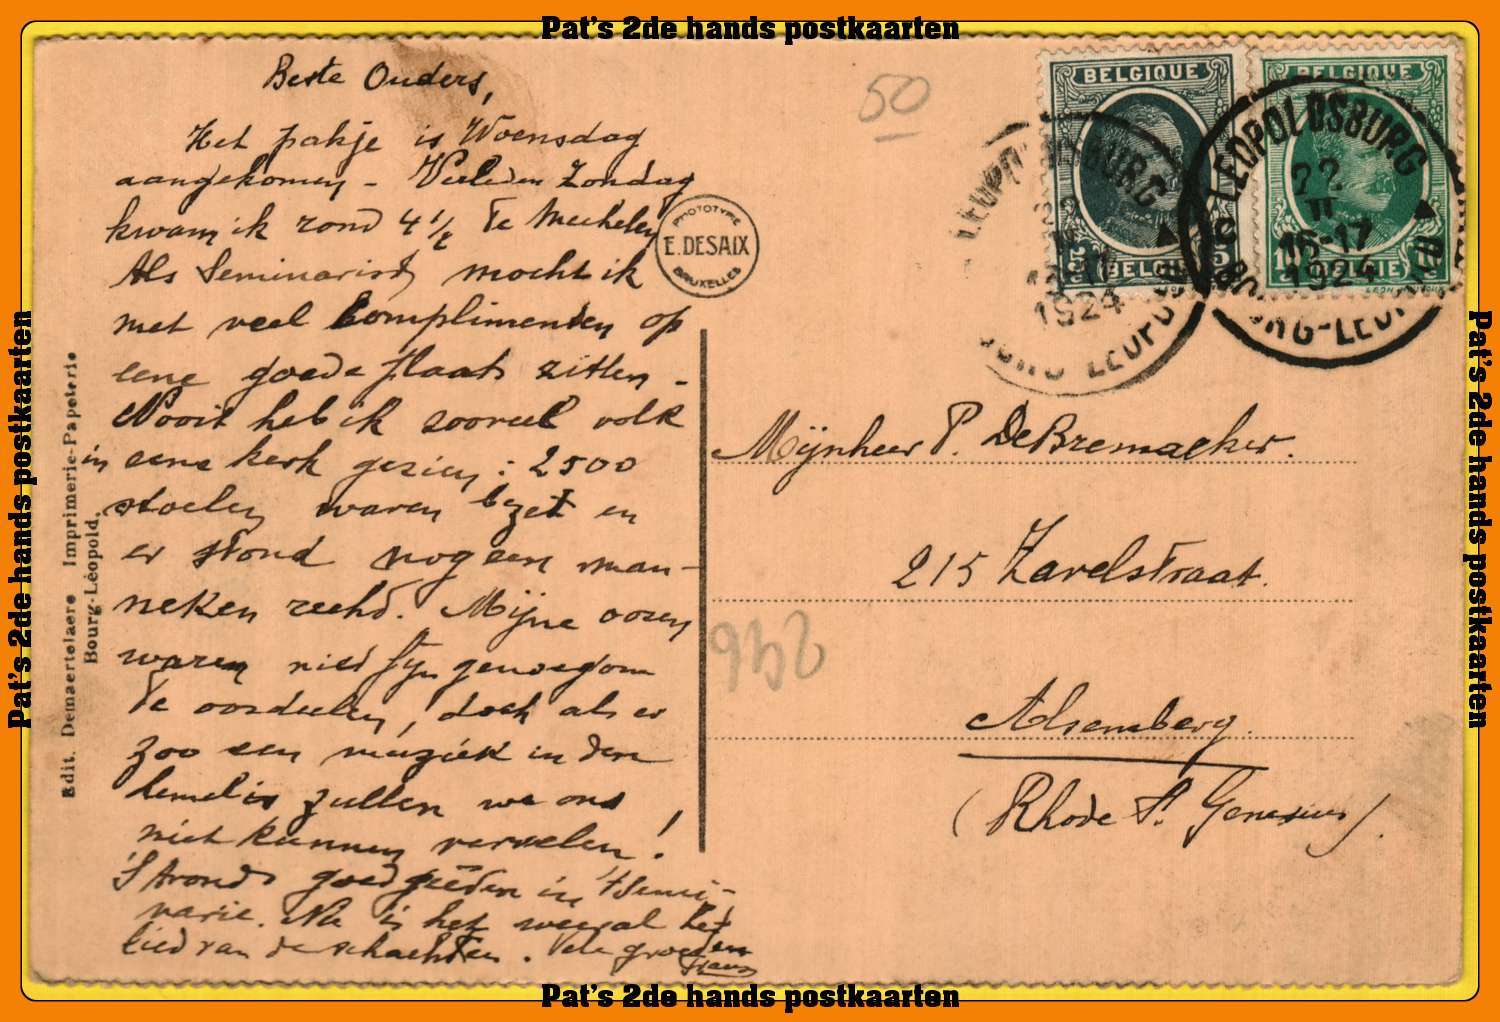 Pat's 2de hands postkaarten
Beste Ouders,
Het pakje is Woensdag
aangekomen – Verleden Zondag
kwam ik rond 4 ½ te Mechelen
Als Seminarist mocht ik
met veel complimenten op
eene goede plaats zitten –
Nooit heb ik zooveel volk
in eene kerk gezien: 2500
stoelen waren bezet en
er stond nog een man-
neken recht. Mijne ooren
waren niet fijn genoeg om
te oordeelen, doch als er
zoo een muziek in den
hemel is zullen we ons
niet kunnen vervelen!
'S Avonds goed in 't Semi-
narie. Nu is het weeral het
lied van de schachten. Vele groeten
Edit. Demaertelaere Imprimerie-Papeterie
Bourg-Léopold.
PHOTOTYPIE
E. DESAIX
BRUXELLES
50
BELGIQUE
5 BELGIË 5
BELGIQUE
10 BELGIE 10
LEOPOLDSBURG
1924
BOURG-LEOPOLD
LEOPOLDSBURG
22
II
16-17
1924
BOURG-LEOPOLD
Mijnheer P. DeBremaeker.
215 Zavelstraat.
946
Alsemberg.
(Rhode St. Genesius).
Pat's 2de hands postkaarten
Pat's 2de hands postkaarten
Pat's 2de hands postkaarten